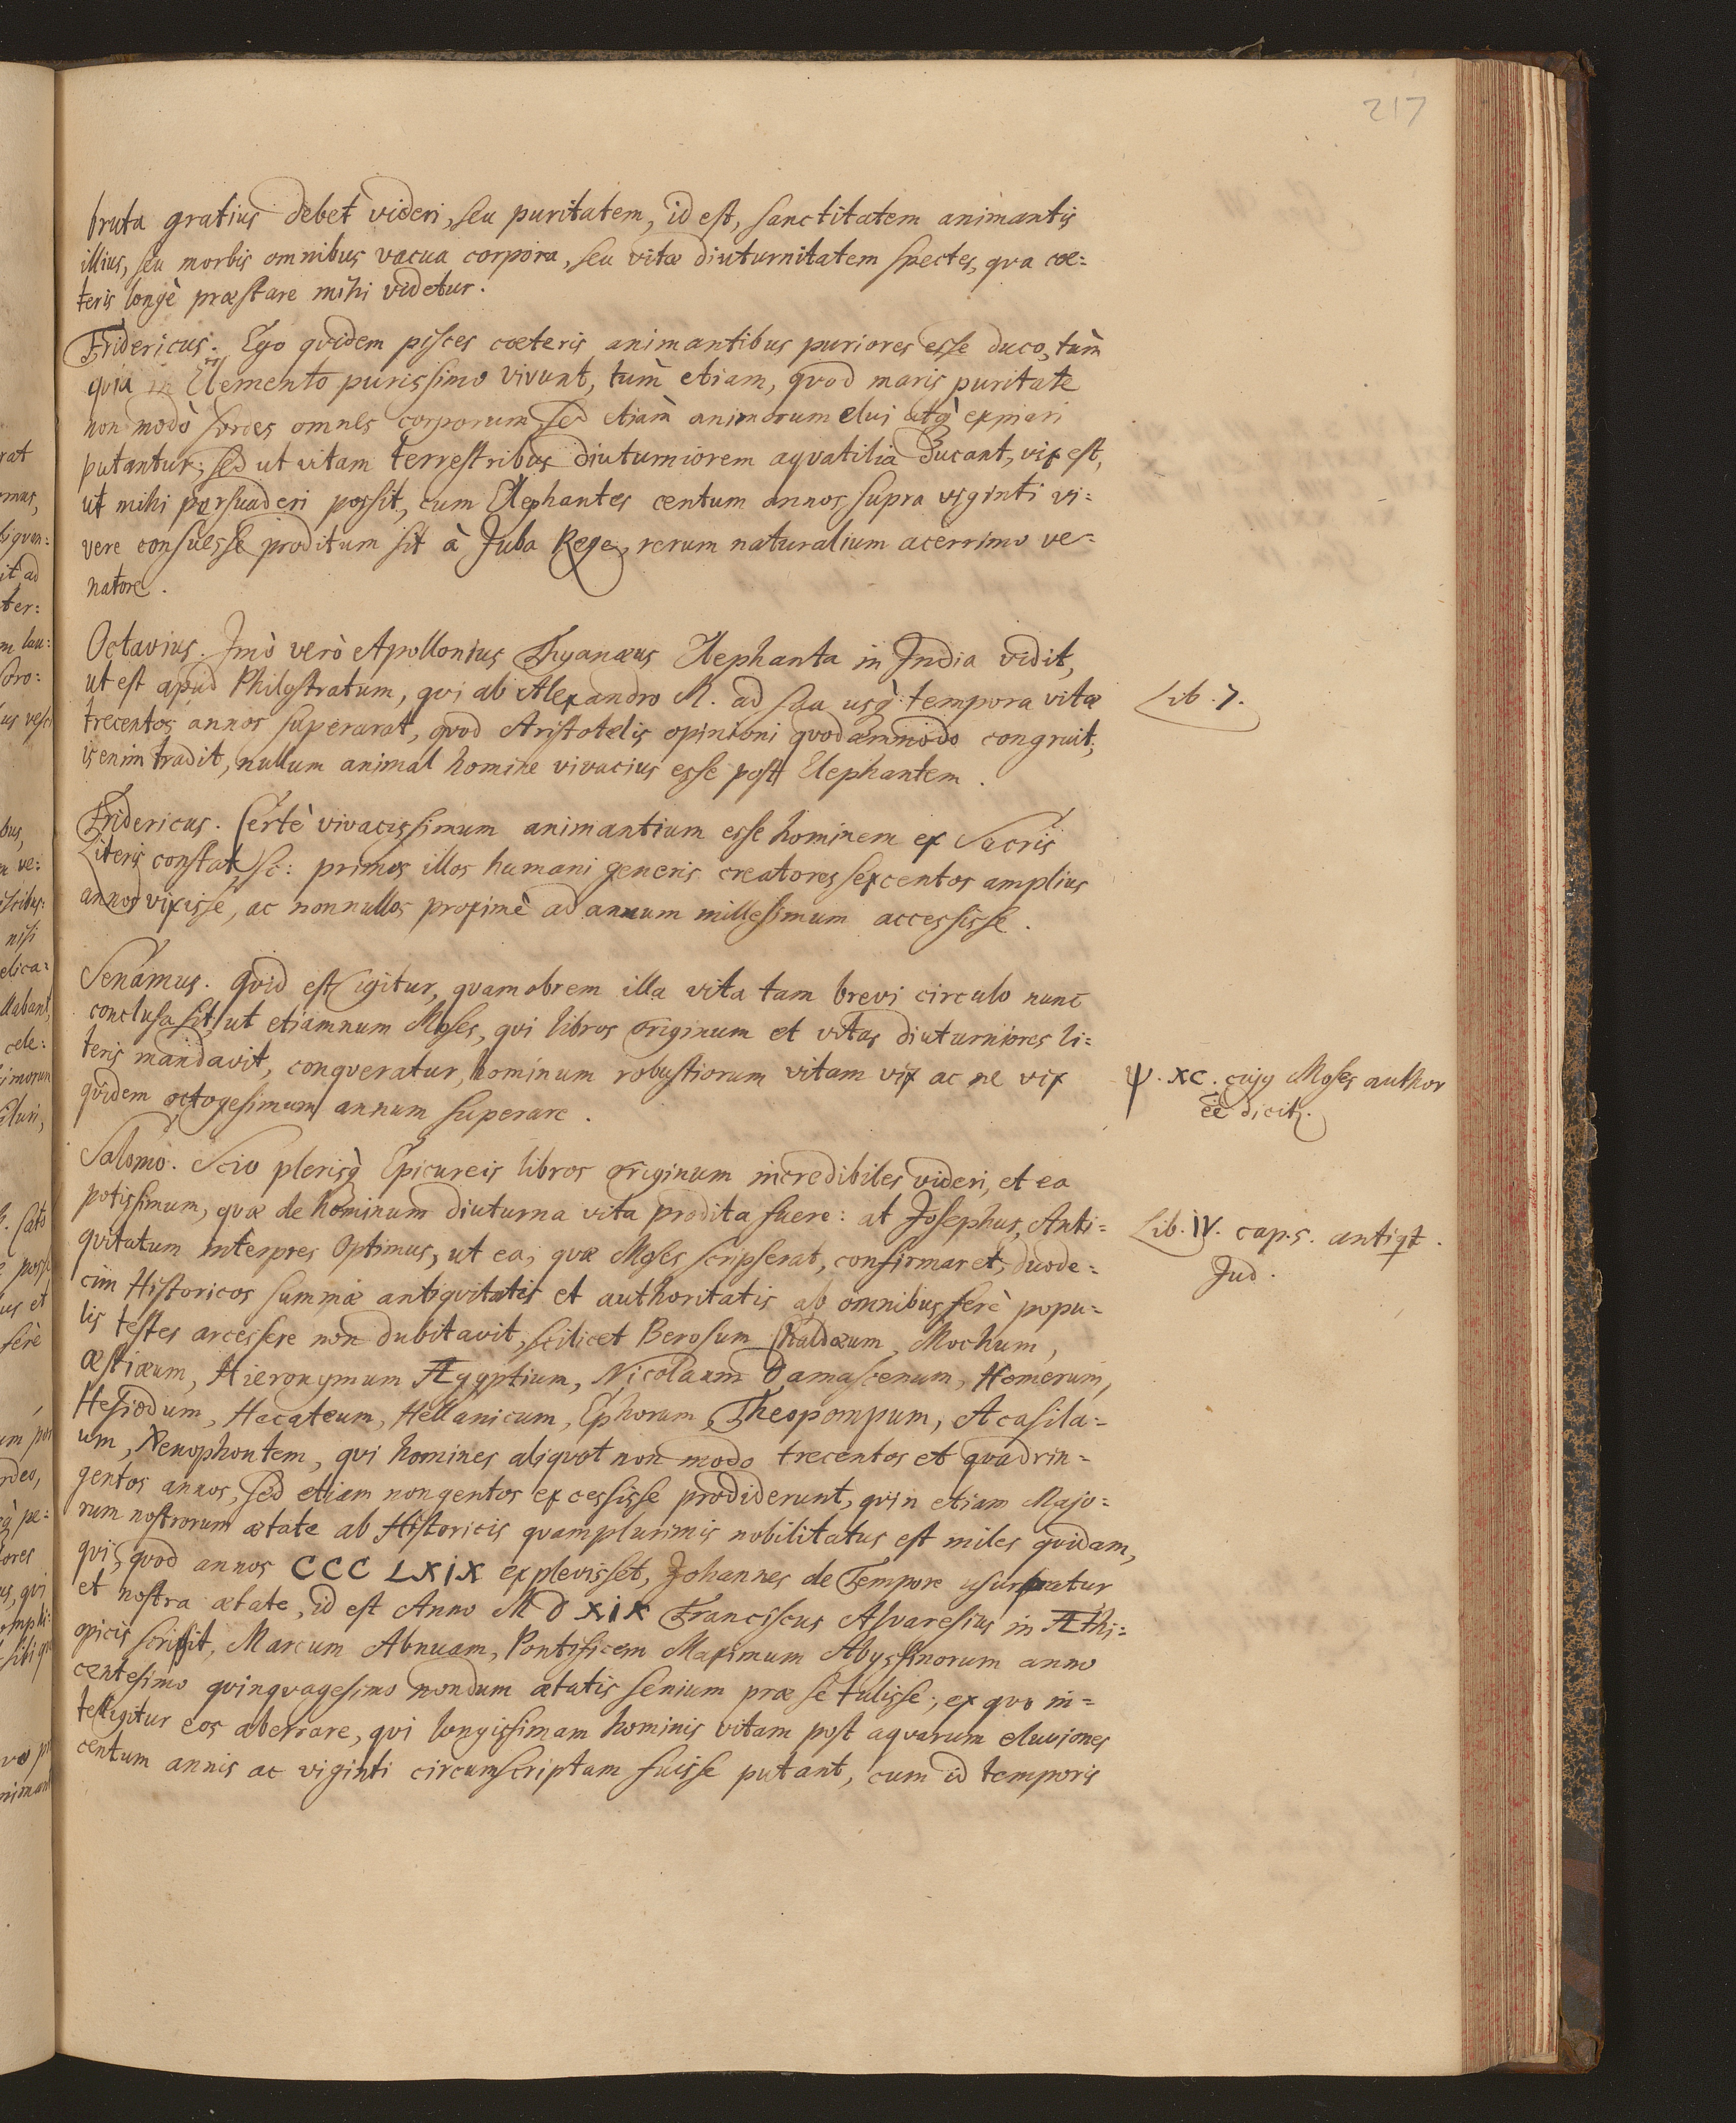 217
bruta gratius debet videri, seu puritatem, id est, sanctitatem animantis
illius, seu morbis omnibus vacua corpora, seu vitæ diuturnitatem spectes, qva cœ=
teris longè præstare mihi videtur.
Fridericus. Ego qvidem pisces cæteris animantibus puriores esse duco, tùm
qvia in Elemento purissimo vivunt, tùm etiam, qvod maris puritate
non modò sordes omnes corporum, sed etiàm animorum elui atq̀ expiari
putantur; sed ut vitam terrestribus diuturniorem aqvatilia ducant, vix est,
ut mihi persuaderi possit, cum Elephantes centum annos supra viginti vi=
vere consuesse proditum sit à Juba Rege, rerum naturalium acerrimo ve=
natore.
Octavius. Jmò verò Apollonius Thyanæus Elephanta in Jndia vidit,
ut est apud Philostratum, qvi ab Alexandro M. ad sua usq̀ tempora vitæ
Lib. 7.
trecentos annos superarat, qvod Aristotelis opinioni qvodammodo congruit;
is enim tradit, nullum animal homine vivacius esse post Elephantem.
Fridericus. Certè vivacissimum animantium esse hominem ex Sacris
Literis constat, Sc: primos illos humani generis creatores sexcentos amplius
annos vixisse, ac nonnullos proximè ad annum millesimum accessisse.
Senamus. Qvid est igitur, qvamobrem illa vita tam brevi circulo nunc
conclusa sit, ut etiamnum Moses, qvi libros originum et vitas diuturniores li=
teris mandavit, conqveratur, hominum robustiorum vitam vix ac ne vix
ψ. XC. cujq Moses author
qvidem octogesimum annum superare.
eē dicitr.
Salomo. Scio plerisq̀ Epicureis libros originum incredibiles videri, et ea
potissimum, qvæ de hominum diuturna vita prodita fuere: at Josephus, Anti=
Lib. IV. cap. 5. antiqt.
qvitatum interpres Optimus, ut ea, qvæ Moses scripserat, confirmaret, duode=
Jud.
cim Historicos summæ antiqvitatis et authoritatis ab omnibus ferè popu=
lis testes arcessere non dubitavit, scilicet Berosum Chaldæum, Mochum,
Æstiæum, Hieronymum Ægyptium, Nicolaum Damascenum, Homerum,
Hesiodum, Hecateum, Hellanicum, Ephorum Theopompum, Acasila=
um, Xenophontem, qvi homines aliqvot non modo trecentos et qvadrin=
gentos annos, sed etiam nongentos excessisse prodiderunt, qvin etiam Majo=
rum nostrorum ætate ab Historicis qvamplurimis nobilitatus est miles qvidam,
qvi, qvod annos CCC LXIX explevisset, Johannes de Tempore usurpatur
et nostra ætate, id est Anno M D XIX Franciscus Alvaresius in Æthi=
opicis scripsit, Marcum Abnuam, Pontificem Maximum Abyssinorum anno
centesimo qvinqvagesimo nondum ætatis senium præ se tulisse; ex qvo in=
telligitur eos aberrare, qvi longissimam hominis vitam post aqvarum eluviones
centum annis ac viginti circumscriptam fuisse putant, cum id temporis